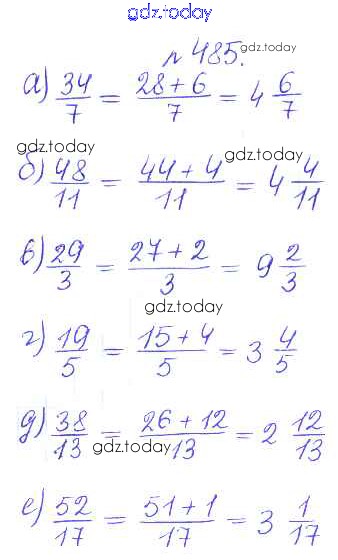 gdz.today
№ 485. gdz.today
а) 34/7 = 28+6/7 = 4 6/7
gdz.today gdz.today
б) 48/11 = 44+4/11 = 4 4/11
в) 29/3 = 27+2/3 = 9 2/3
gdz.today
г) 19/5 = 15+4/5 = 3 4/5
д) 38/13 = 26+12/13 = 2 12/13
gdz.today
е) 52/17 = 51+1/17 = 3 1/17